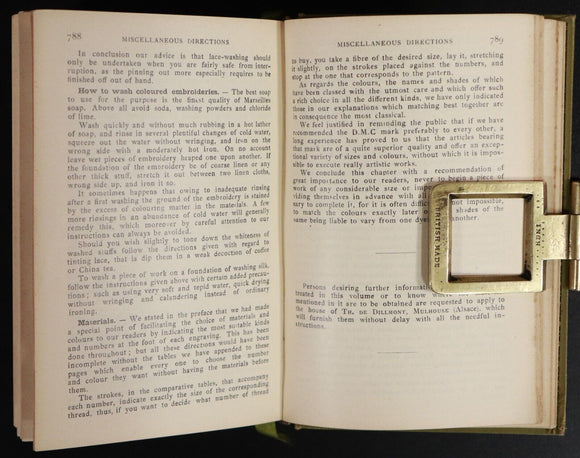 788
MISCELLANEOUS DIRECTIONS
In conclusion our advice is that lace-washing should
only be undertaken when you are fairly safe from inter-
ruption, as the pinning out more especially requires to be
finished off out of hand.
How to wash coloured embroideries. — The best soap
to use for the purpose is the finest quality of Marseilles
soap. Above all avoid soda, washing powders and chloride
of lime.
Wash quickly and without much rubbing in a hot lather
of soap, and rinse in several plentiful changes of cold water,
squeeze out the water without wringing, and iron on the
wrong side with a moderately hot iron. On no account
leave wet pieces of embroidery heaped one upon another. If
the foundation of the embroidery be of coarse linen or any
other thick stuff, stretch it out between two linen cloths,
wrong side up, and iron it so.
It sometimes happens that owing to inadequate rinsing
after a first washing the ground of the embroidery is stained
by the excess of colouring matter in the materials. A few
more rinsings in an abundance of cold water will generally
remedy this, which moreover by careful attention to our
instructions can always be avoided.
Should you wish slightly to tone down the whiteness of
washed stuffs follow the directions given with regard to
tinting lace, that is, dip them in a weak decoction of coffee
or China tea.
To wash a piece of work on a foundation of washing silk,
follow the instructions given above with certain added precau-
tions; such as using very soft and tepid water, quick drying
without wringing and calandering instead of ordinary
ironing.
Materials. — We stated in the preface that we had made
a special point of facilitating the choice of materials and
colours to our readers by indicating the most suitable kinds
and numbers at the foot of each engraving. This has been
done throughout; but all these directions would have been
incomplete without the tables we have appended to these
pages which enable every one to choose the number
and colour they want without having the materials before
them.
The strokes, in the comparative tables, that accompany
each number, indicate exactly the size of the corresponding
thread, thus, if you want to decide what number of thread
MISCELLANEOUS DIRECTIONS
789
to buy, you take a fibre of the desired size, lay it, stretching
it slightly, on the strokes placed against the numbers, and
stop at the one that corresponds to the pattern.
As regards the colours, the names and shades of which
have been classed with the utmost care and which offer such
a rich choice in all the different kinds, we have only indicated
those in our explanations which matching best together are
in consequence the most classical.
We feel justified in reminding the public that if we have
recommended the D.M.C mark preferably to every other, a
long experience has proved to us that the articles bearing
that mark are of a quite superior quality and offer an excep-
tional variety of sizes and colours, without which it is impos-
sible to execute really artistic works.
We conclude this chapter with a recommendation of
great importance to our readers, never to begin a piece of
work of any considerable size or
viding themselves in advance with all
sary to complete it, for it is often diffic not impossible,
to match the colours exactly later o shades of the
same being liable to vary from one dye another.
Persons desiring further informa
treated in this volume or to know where
mentioned in it are to be obtained are requested to apply to
the house of TH. DE DILLMONT, MULHOUSE (Alsace), which
will furnish them without delay with all the needful in-
structions.
BRITISH MADE